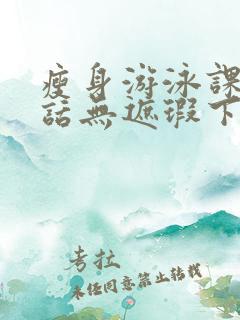 瘦身游泳課
話無遮瑕下
考拉
未任同意禁止转载